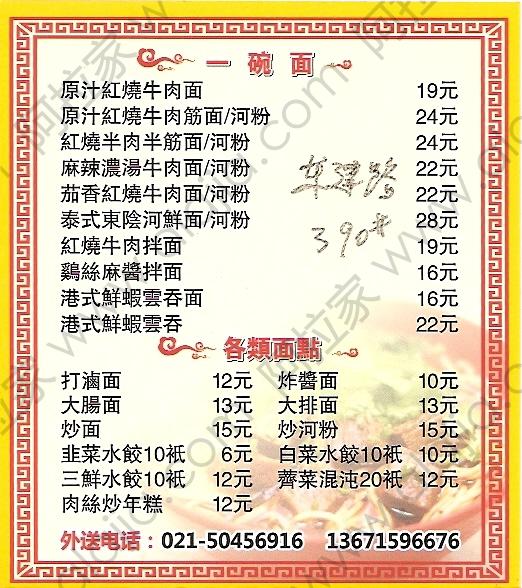 一碗面
原汁紅燒牛肉面 19元
原汁紅燒牛肉筋面/河粉 24元
紅燒半肉半筋面/河粉 24元
麻辣濃湯牛肉面/河粉 22元
茄香紅燒牛肉面/河粉 22元
泰式東陰河鮮面/河粉 28元
390#
紅燒牛肉拌面 19元
鷄絲麻醬拌面 16元
港式鮮蝦雲吞面 16元
港式鮮蝦雲吞 22元
各類面點
打滷面 12元 炸醬面 10元
大腸面 13元 大排面 13元
炒面 15元 炒河粉 15元
韭菜水餃10祇 6元 白菜水餃10祇 10元
三鮮水餃10祇 12元 薺菜混沌20祇 12元
肉絲炒年糕 12元
外送电话：021-50456916 13671596676
阿拉家 www.alajia.com